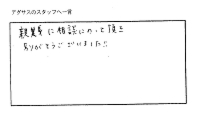 アダサスのスタッフへ一言
親異等に相談にのって頂き
ありがとうございました!!